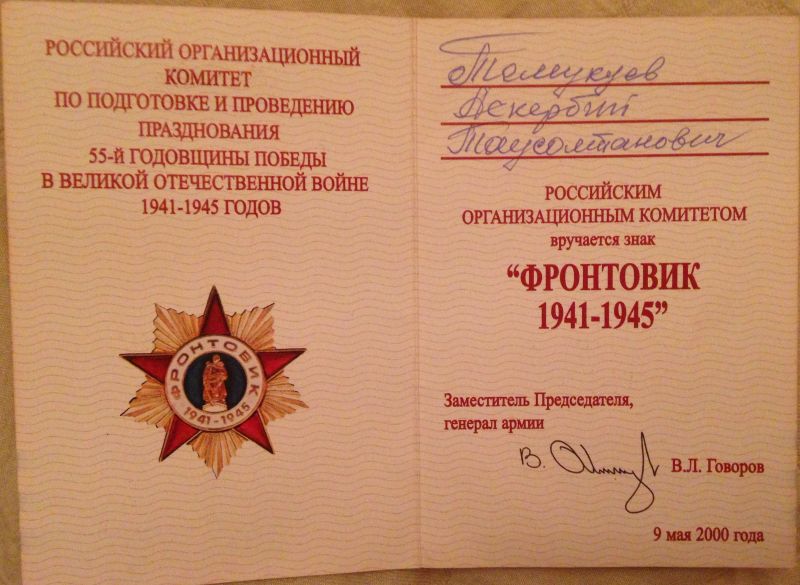 РОССИЙСКИЙ ОРГАНИЗАЦИОННЫЙ
КОМИТЕТ
ПО ПОДГОТОВКЕ И ПРОВЕДЕНИЮ
ПРАЗДНОВАНИЯ
55-й ГОДОВЩИНЫ ПОБЕДЫ
В ВЕЛИКОЙ ОТЕЧЕСТВЕННОЙ ВОЙНЕ
1941-1945 ГОДОВ
ФРОНТОВИК
1941-1945
Аскербий
Таусолтанович
РОССИЙСКИМ
ОРГАНИЗАЦИОННЫМ КОМИТЕТОМ
вручается знак
“ФРОНТОВИК
1941-1945”
Заместитель Председателя,
генерал армии
В.Л. Говоров
9 мая 2000 года